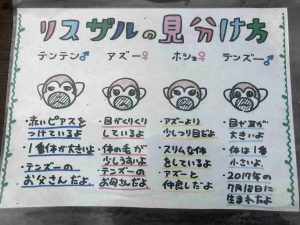 リスザルの見分け方
テンテン♂ アズー♀ ホショ♀ テンズー♂
・赤いピアスを
つけているよ
・1番体が大きいよ
・テンズーの
お父さんだよ
・目がくりくり
しているよ
・体の毛が
少しうすいよ
・テンズーの
お母さんだよ
・アズーより
少しつり目だよ
・スリムな体
をしているよ
・アズーと
仲良しだよ
・目や耳が
大きいよ
・体は1番
小さいよ
・2017年の
7月18日に
生まれたよ